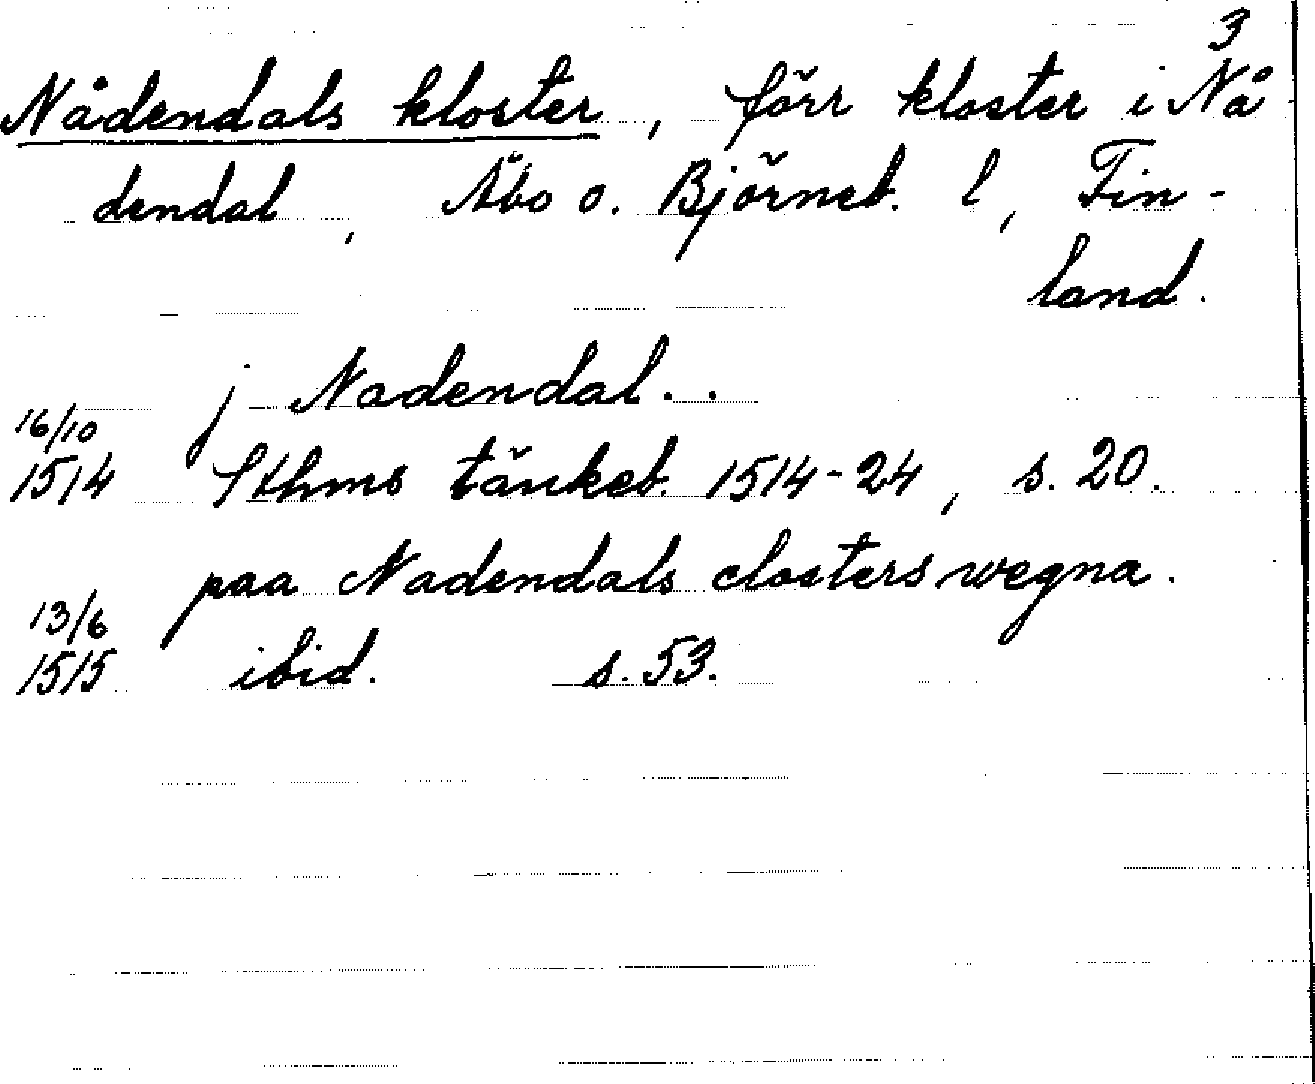 3
Nådendals kloster, förr kloster i Nå
dendal, Åbo o. Björneb. l, Fin-
land.
j Nadendal..
16/10
1514 Sthms tänkeb. 1514-24, s. 20.
paa Nadendals closters wegna.
13/6
1515 ibid. s. 53.